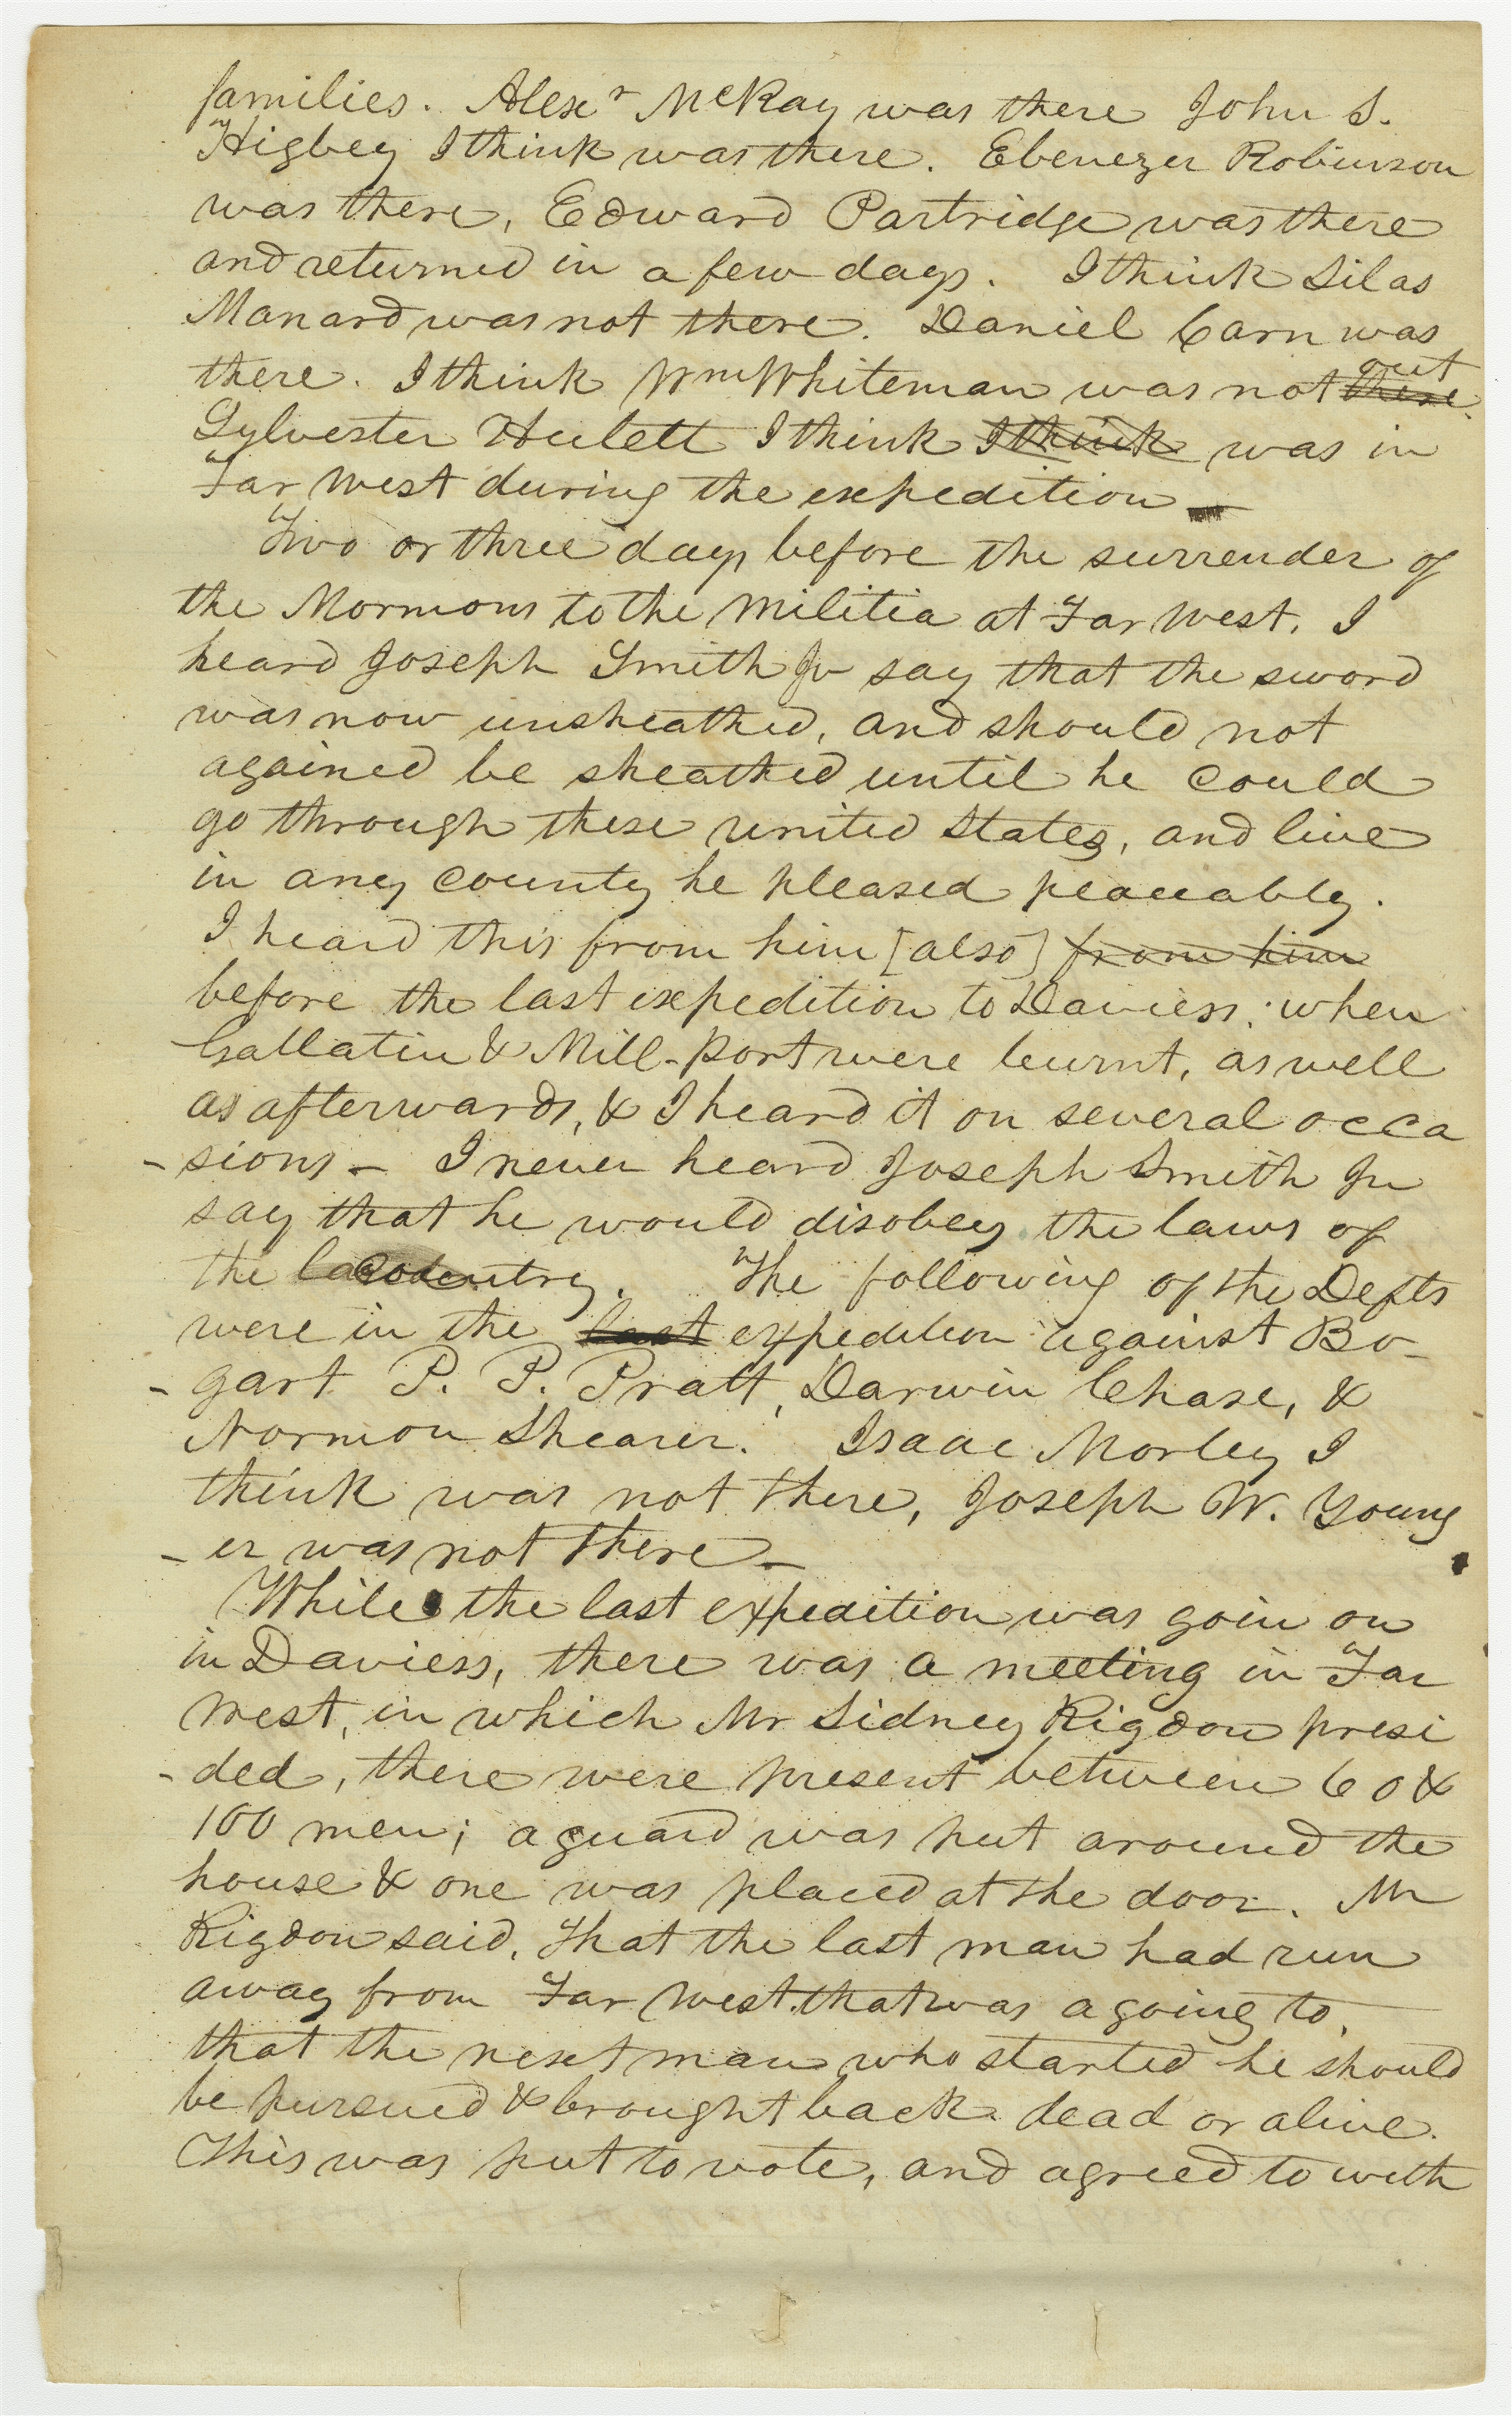 families. Alexr McRay was there John S.
Higbey I think was there. Ebenezer Robinson
was there, Edward Partridge was there
and returned in a few days. I think Silas
Manard was not there. Daniel Carn was
there. I think Wm Whiteman was not there. out
Sylvester Hulett I think I think was in
Far West during the expedition
Two or three days before the surrender of
the Mormons to the Militia at Far West, I
heard Joseph Smith Jr say that the sword
was now unsheathed, and should not
agained be sheathed until he could
go through these united States, and live
in any county he pleased peaceably.
I heard this from him [also] from him
before the last expedition to Daviess; when
Gallatin & Mill-port were burnt, as well
as afterwards, & I heard it on several occa
-sions- I never heard Joseph Smith Jr
say that he would disobey the laws of
the country. The following of the Defts
were in the last expedition against Bo-
-gart P. P. Pratt, Darwin Chase, &
Normon Shearer. Isaac Morley I
think was not there, Joseph W. Young
-er was not there-
While the last expedition was goin on
in Daviess, there was a meeting in Far
West, in which Mr Sidney Rigdon presi
-ded, there were present between 60 &
100 men; a guard was put around the
house & one was placed at the door. Mr
Rigdon said, that the last man had run
away from Far West, that was a going to,
that the next man who started he should
be pursued & brought back dead or alive.
This was put to vote, and agreed to with